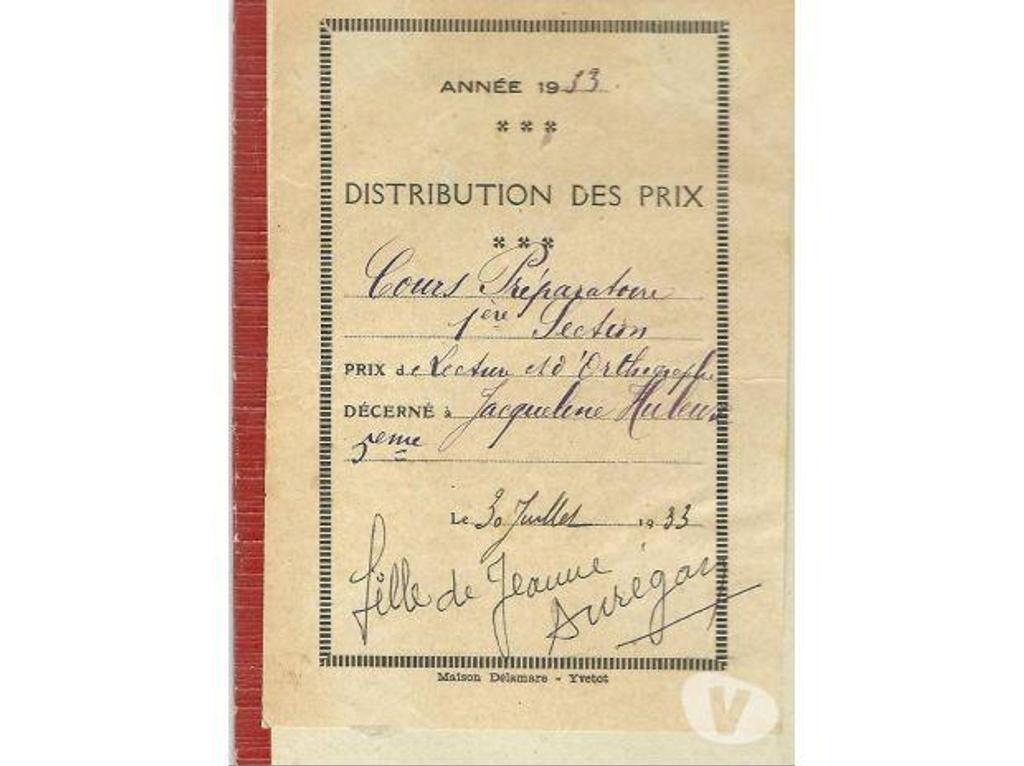 ANNÉE 1933.
DISTRIBUTION DES PRIX
Cours Préparatoire
1ère Section
PRIX de Lecture et d'Orthographe
DÉCERNÉ à Jacqueline Huleux
5eme
Le 30 Juillet 1933
fille de Jeanne
Aurégan
Maison Délamare - Yvetot
V